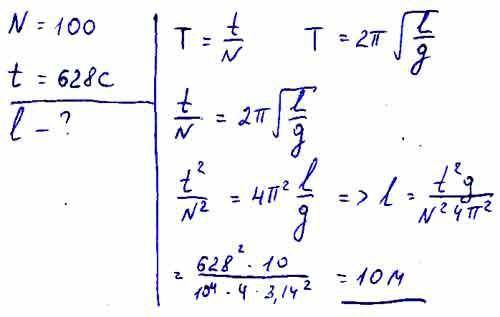 N = 100
t = 628с
l - ?
T = t/N    T = 2π√(l/g)
t/N = 2π√(l/g)
t²/N² = 4π² l/g => l = t²g/N²4π²
= 628² · 10/10⁴ · 4 · 3,14² = 10м